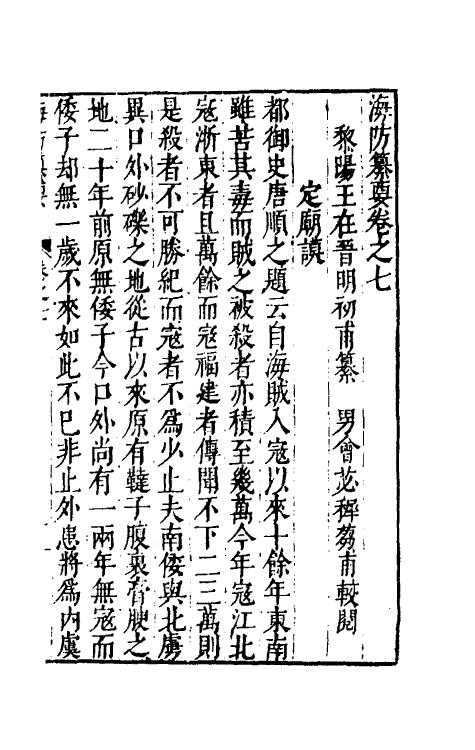 海防纂要卷之七
黎陽王在晋明初甫纂　男會苾穉芻甫較閱
定廟謨
都御史唐順之題云自海賊入寇以來十餘年東南
雖苦其毒而賊之被殺者亦積至幾萬今年寇江北
寇浙東者且萬餘而寇福建者傳聞不下二三萬則
是殺者不可勝紀而寇者不爲少止夫南倭與北虜
異口外砂磧之地從古以來原有韃子腹裏膏腴之
地二十年前原無倭子今口外尚有一兩年無寇而
倭子却無一歲不來如此不已非止外患將爲内虞
海防纂要　卷之七